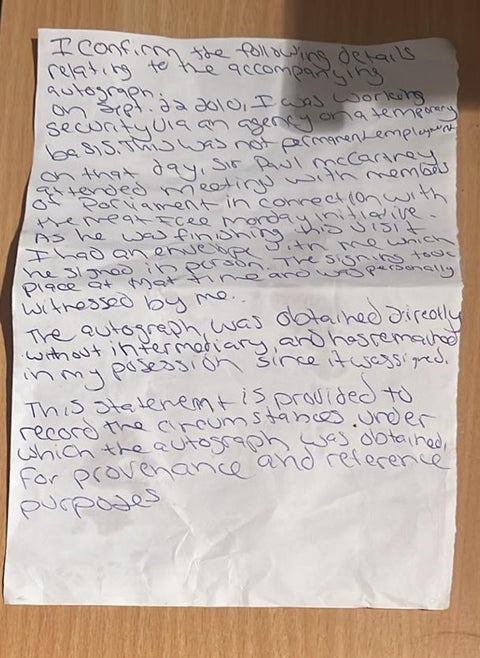 I confirm the following details
relating to the accompanying
autograph.
on Sept. 22 2010, I was working
security via an agency on a temporary
basis. This was not permanent employment
on that day, Sir Paul McCartney
attended meetings with members
of Parliament in connection with
the Meat Free Monday initiative.
As he was finishing this visit
I had an envelope with me which
he signed in person. The signing took
place at that time and was personally
witnessed by me..
The autograph, was obtained directly
without intermediary, and has remained
in my posession since it was signed.
This statement is provided to
record the circumstances under
which the autograph was obtained,
for provenance and reference
purposes